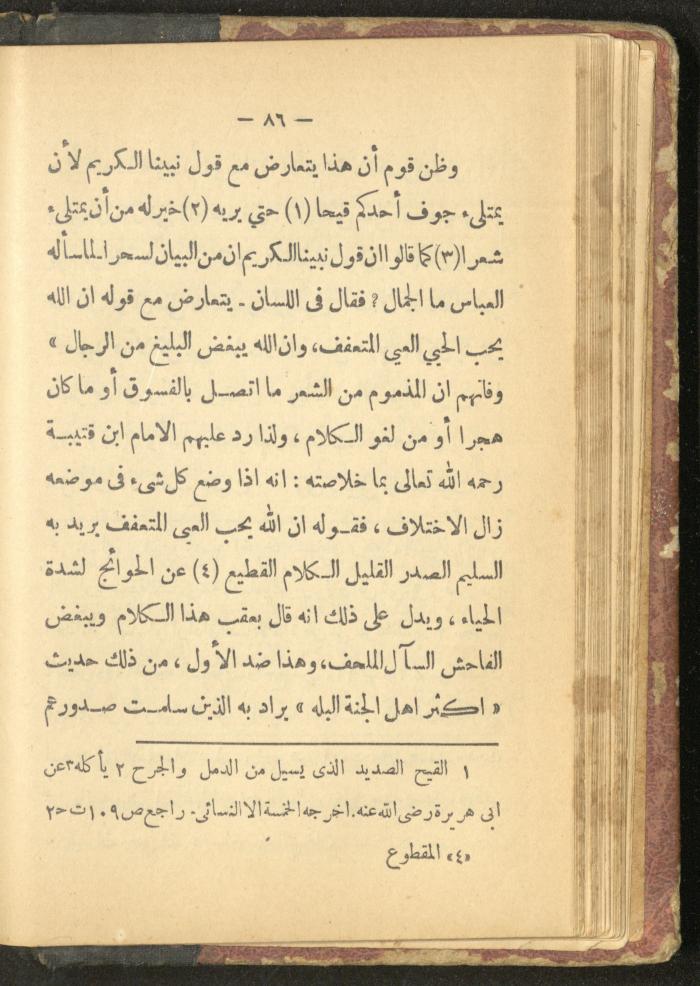 — ٨٦ —
وظن قوم أن هذا يتعارض مع قول نبينا الكريم لأن
يمتلىء جوف أحدكم قيحا (١) حتي يريه (٢) خير له من أن يمتلىء
شعرا (٣) كما قالوا ان قول نبينا الكريم ان من البيان لسحرا لما سأله
العباس ما الجمال ? فقال فى اللسان - يتعارض مع قوله ان الله
يحب الحيي العيي المتعفف، وان الله يبغض البليغ من الرجال »
وفاتهم ان المذموم من الشعر ما اتصل بالفسوق أو ما كان
هجرا أو من لغو الكلام ، ولذا رد عليهم الامام ابن قتيبة
رحمه الله تعالى بما خلاصته : انه اذا وضع كل شىء فى موضعه
زال الاختلاف ، فقوله ان الله يحب العيى المتعفف يريد به
السليم الصدر القليل الكلام القطيع (٤) عن الحوائج لشدة
الحياء ، ويدل على ذلك انه قال بعقب هذا الكلام ويبغض
الفاحش السآل الملحف، وهذا ضد الأول ، من ذلك حديث
« اكثر اهل الجنة البله » يراد به الذين سامت صدورهم
١ القيح الصديد الذى يسيل من الدمل والجرح ٢ يأكله ٣ عن
ابى هريرة رضى الله عنه. اخرجه الخمسة الا النسائى. راجع ص ١٠٩ ت ح ٢
«٤» المقطوع